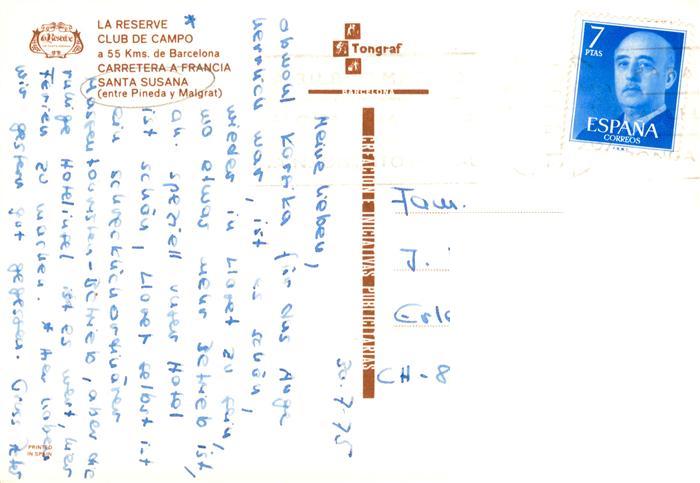 La Reserve
LA RESERVE
CLUB DE CAMPO
a 55 Kms. de Barcelona
CARRETERA A FRANCIA
SANTA SUSANA
(entre Pineda y Malgrat)
*
Tongraf
BARCELONA
CREACION E INICIATIVAS PUBLICITARIAS
7
PTAS
ESPAÑA
CORREOS
Fam.
J.
CH-8
30.7.75
Meine lieben,
obwohl Korsika für das Auge
herrlich war, ist es schön,
wieder in Lloret zu sein,
wo etwas mehr Betrieb ist,
speziell unser Hotel
ist schön, Lloret selbst ist
ein schrecklich ordinärer
Massentouristen-Betrieb, aber die
ruhige Hotelinsel ist es wert, hier
Ferien zu machen. * hier haben
wir gestern gut gegessen. Gruss
PRINTED
IN SPAIN